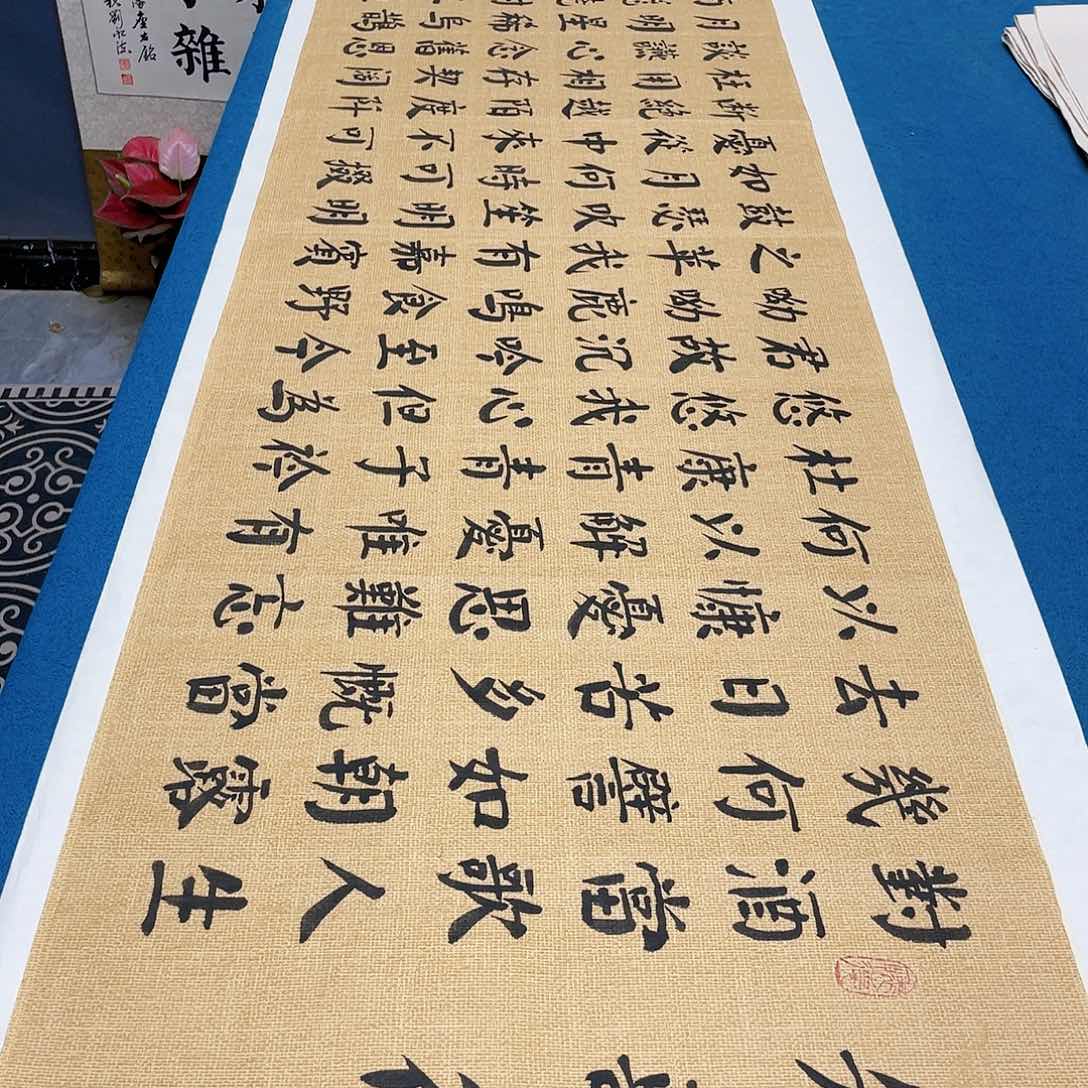 對酒當歌人生
幾何譬如朝露
去日苦多慨當
以慷憂思難忘
何以解憂唯有
杜康青青子衿
悠悠我心但為
君故沉吟至今
呦呦鹿鳴食野
之苹我有嘉賓
鼓瑟吹笙明明
如月何時可掇
憂從中來不可
斷絕越陌度阡
枉用相存契闊
談讌心念舊恩
月明星稀烏鵲
雜